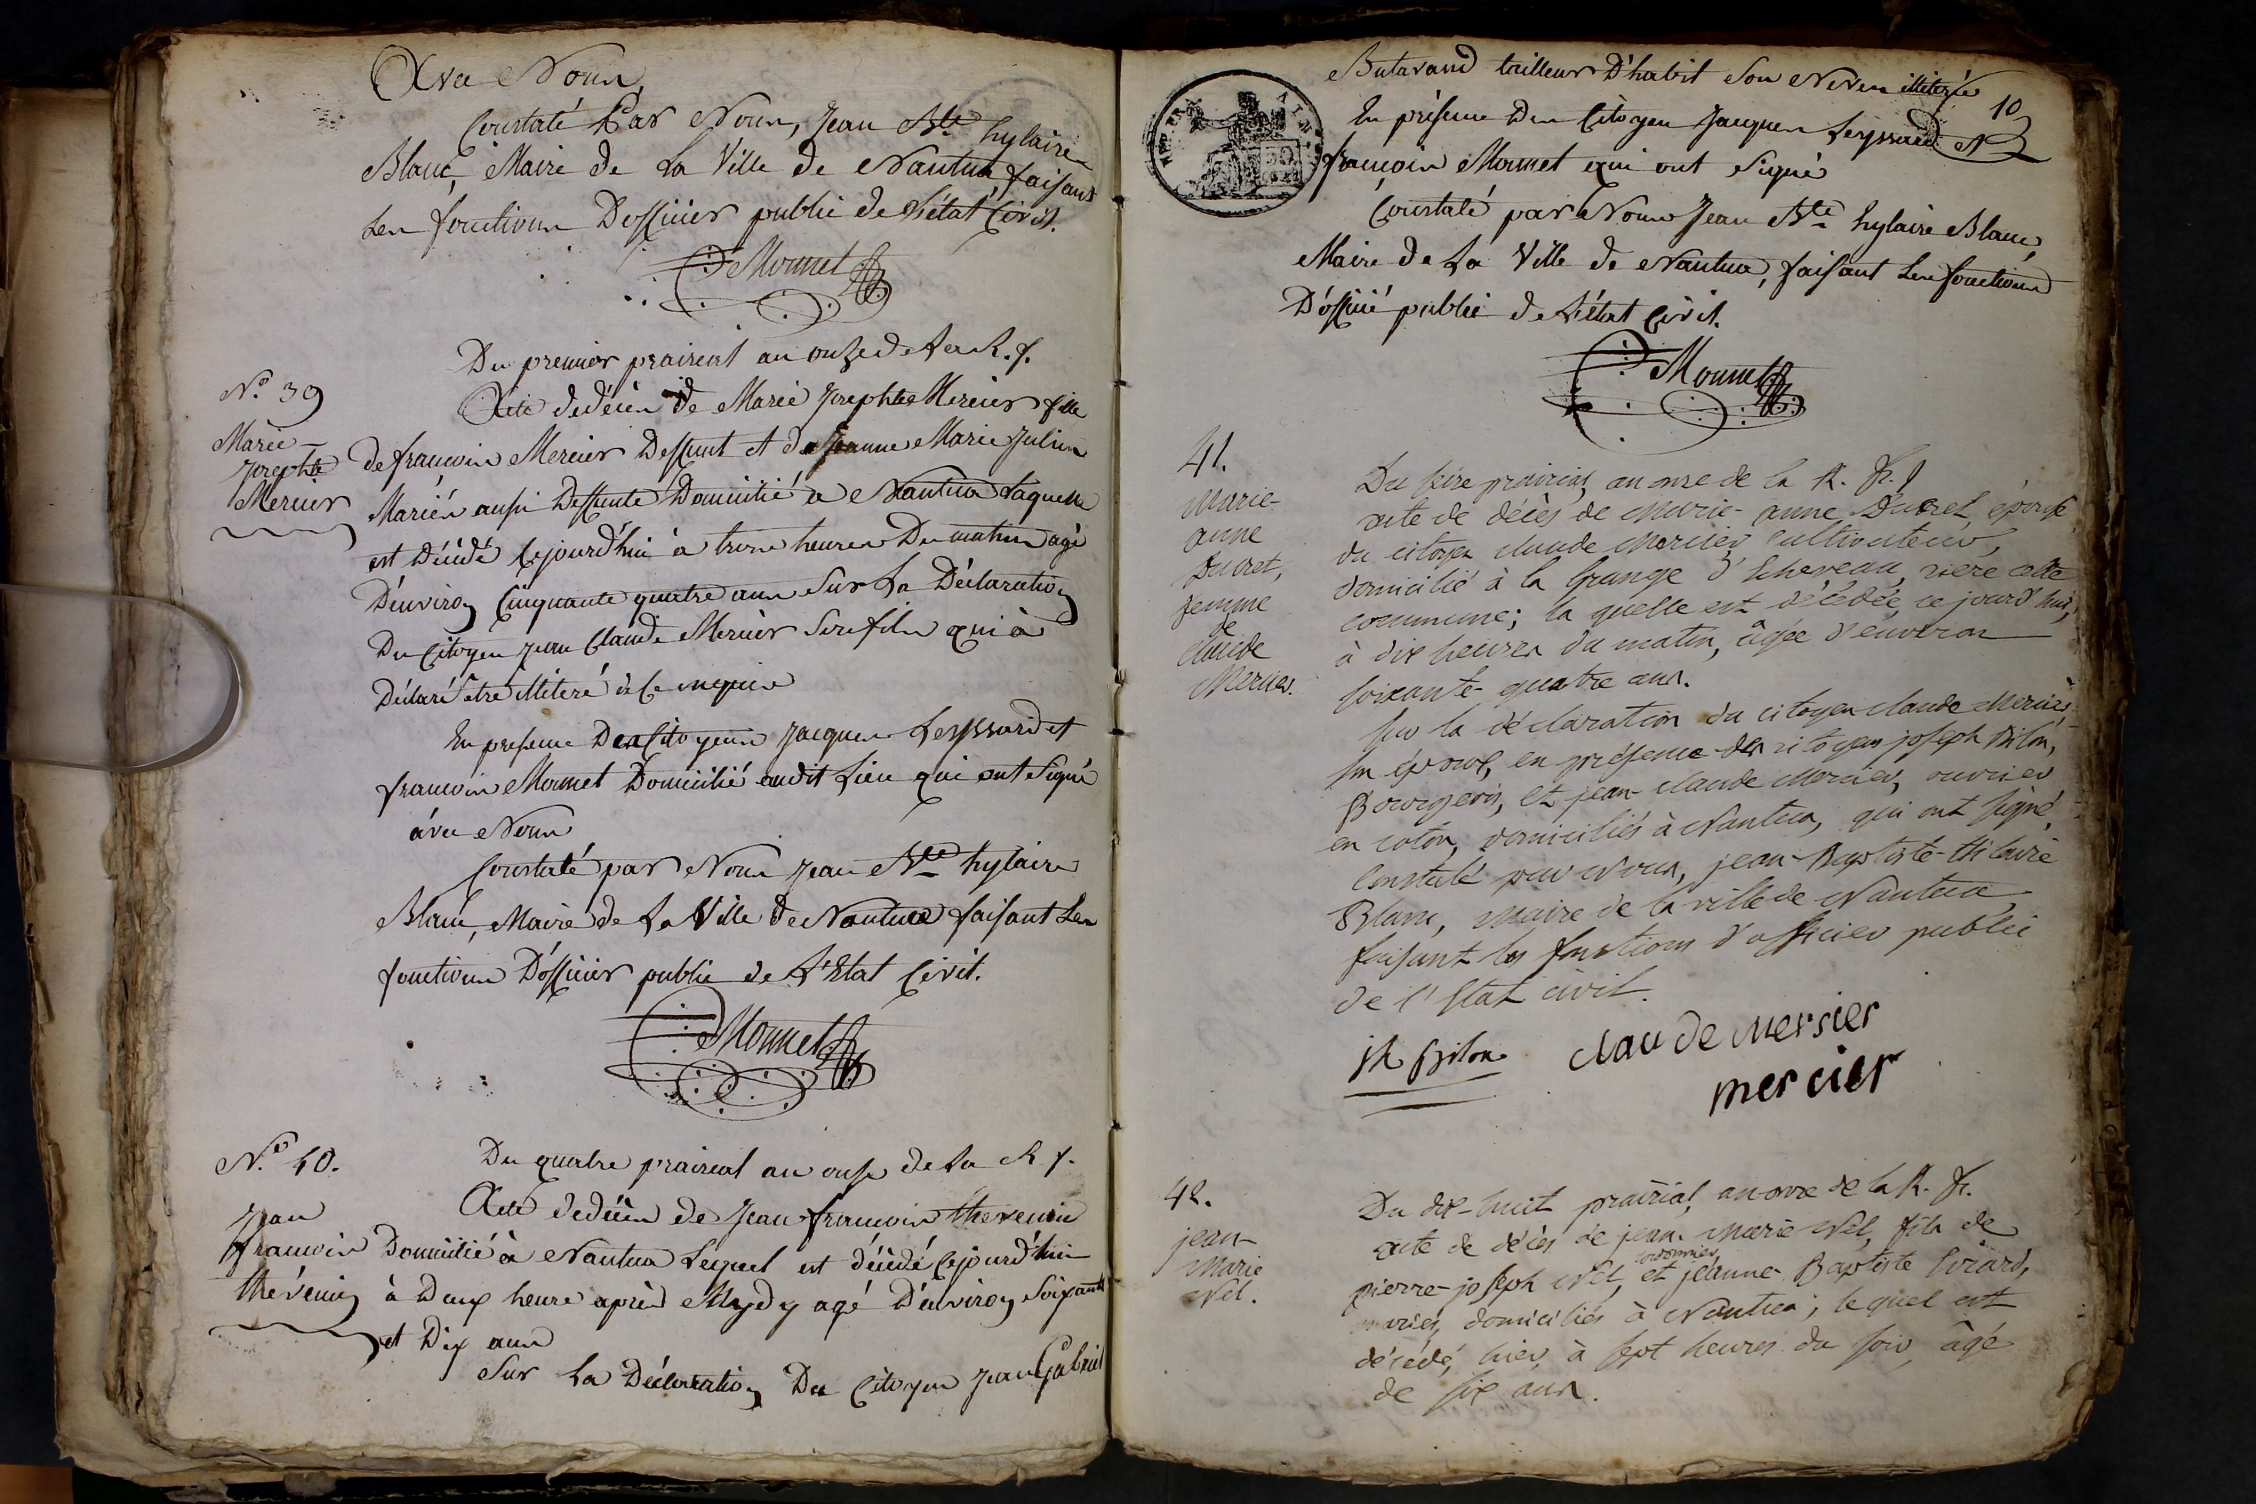 Avec Nous
Constaté Par Nous, Jean Bte hylaire
Blanc, Maire de La Ville de Nantua, faisant
Les fonctions D'officier public de L'état Civil.
Monnet
Du premier prairial an onze de La R. f.
N.o 39
Marie
Josephte
Mercier
Acte de décès de Marie Josephte Mercier fille
de françois Mercier Deffunt et de Jeanne Marie Julien
Mariés aussi Deffunte Domicilié à Nantua Laquelle
est Décédé Cejourd'hui à trois heures Du matin agé
D'environ Cinquante quatre ans Sur La Déclaration
Du Citoyen Jean Claude Mercier Son fils qui à
Déclaré être illiteré de ce enquis
En presence Des Citoyens Jacques Leyssard et
françois Monnet Domicilié audit Lieu qui ont Signé
avec Nous
Constaté par Nous Jean Bte hylaire
Blanc, Maire de La Ville de Nantua faisant Les
fonctions D'officier public de L'Etat Civil.
Monnet
N.o 40.
Jean
françois
thévenin
Du quatre prairial an onze de La R f.
Acte de décès de Jean françois thevenin
Domicilié à Nantua Lequel est décédé Cejourd'hui
à Deux heure après Mydy agé D'environ Soixante
et Dix ans
Sur La Déclaration Du Citoyen Jean Gabriel
10
Butavand tailleur D'habit Son Neveu illiteré
En présence Des Citoyen Jacques Leyssard et
françois Monnet qui ont Signé
Constaté par Nous Jean Bte hylaire Blanc,
Maire de La Ville de Nantua, faisant Les fonctions
D'officié public de L'état Civil.
Monnet
41.
Marie-
anne
Ducret,
femme
de
claude
Mercier.
Du seize prairial, an onze de la R. fr.
acte de décès de Marie-anne Ducret, épouse
du citoyen claude Mercier, cultivateur,
domicilié à la Grange d'Echeveau, riere cette
commune; la quelle est décédée, ce jourd'hui,
à dix heures du matin, âgée d'environ
soixante-quatre ans.
sur la déclaration du citoyen claude Mercier,
son époux, en présence des citoyen joseph Bilon,
Bourgeois, et jean-claude Mercier, ouvrier
en coton, domiciliés à Nantua, qui ont signé
Constaté par nous, jean-Baptiste-Hilaire
Blanc, Maire de la ville de Nantua
faisant les fonctions d'officier public
de l'Etat civil.
jh Bilon
clau de Mersier
mercier
42.
jean-
Marie
Nel.
Du dix-huit prairial, an onze de la R. fr.
acte de décès de jean-Marie Nel, fils de
cordonnier,
pierre-joseph Nel, et jeanne-Baptiste Girard,
mariés, domiciliés à Nantua; lequel est
décédé, hier, à sept heures du soir, âgé
de six ans.